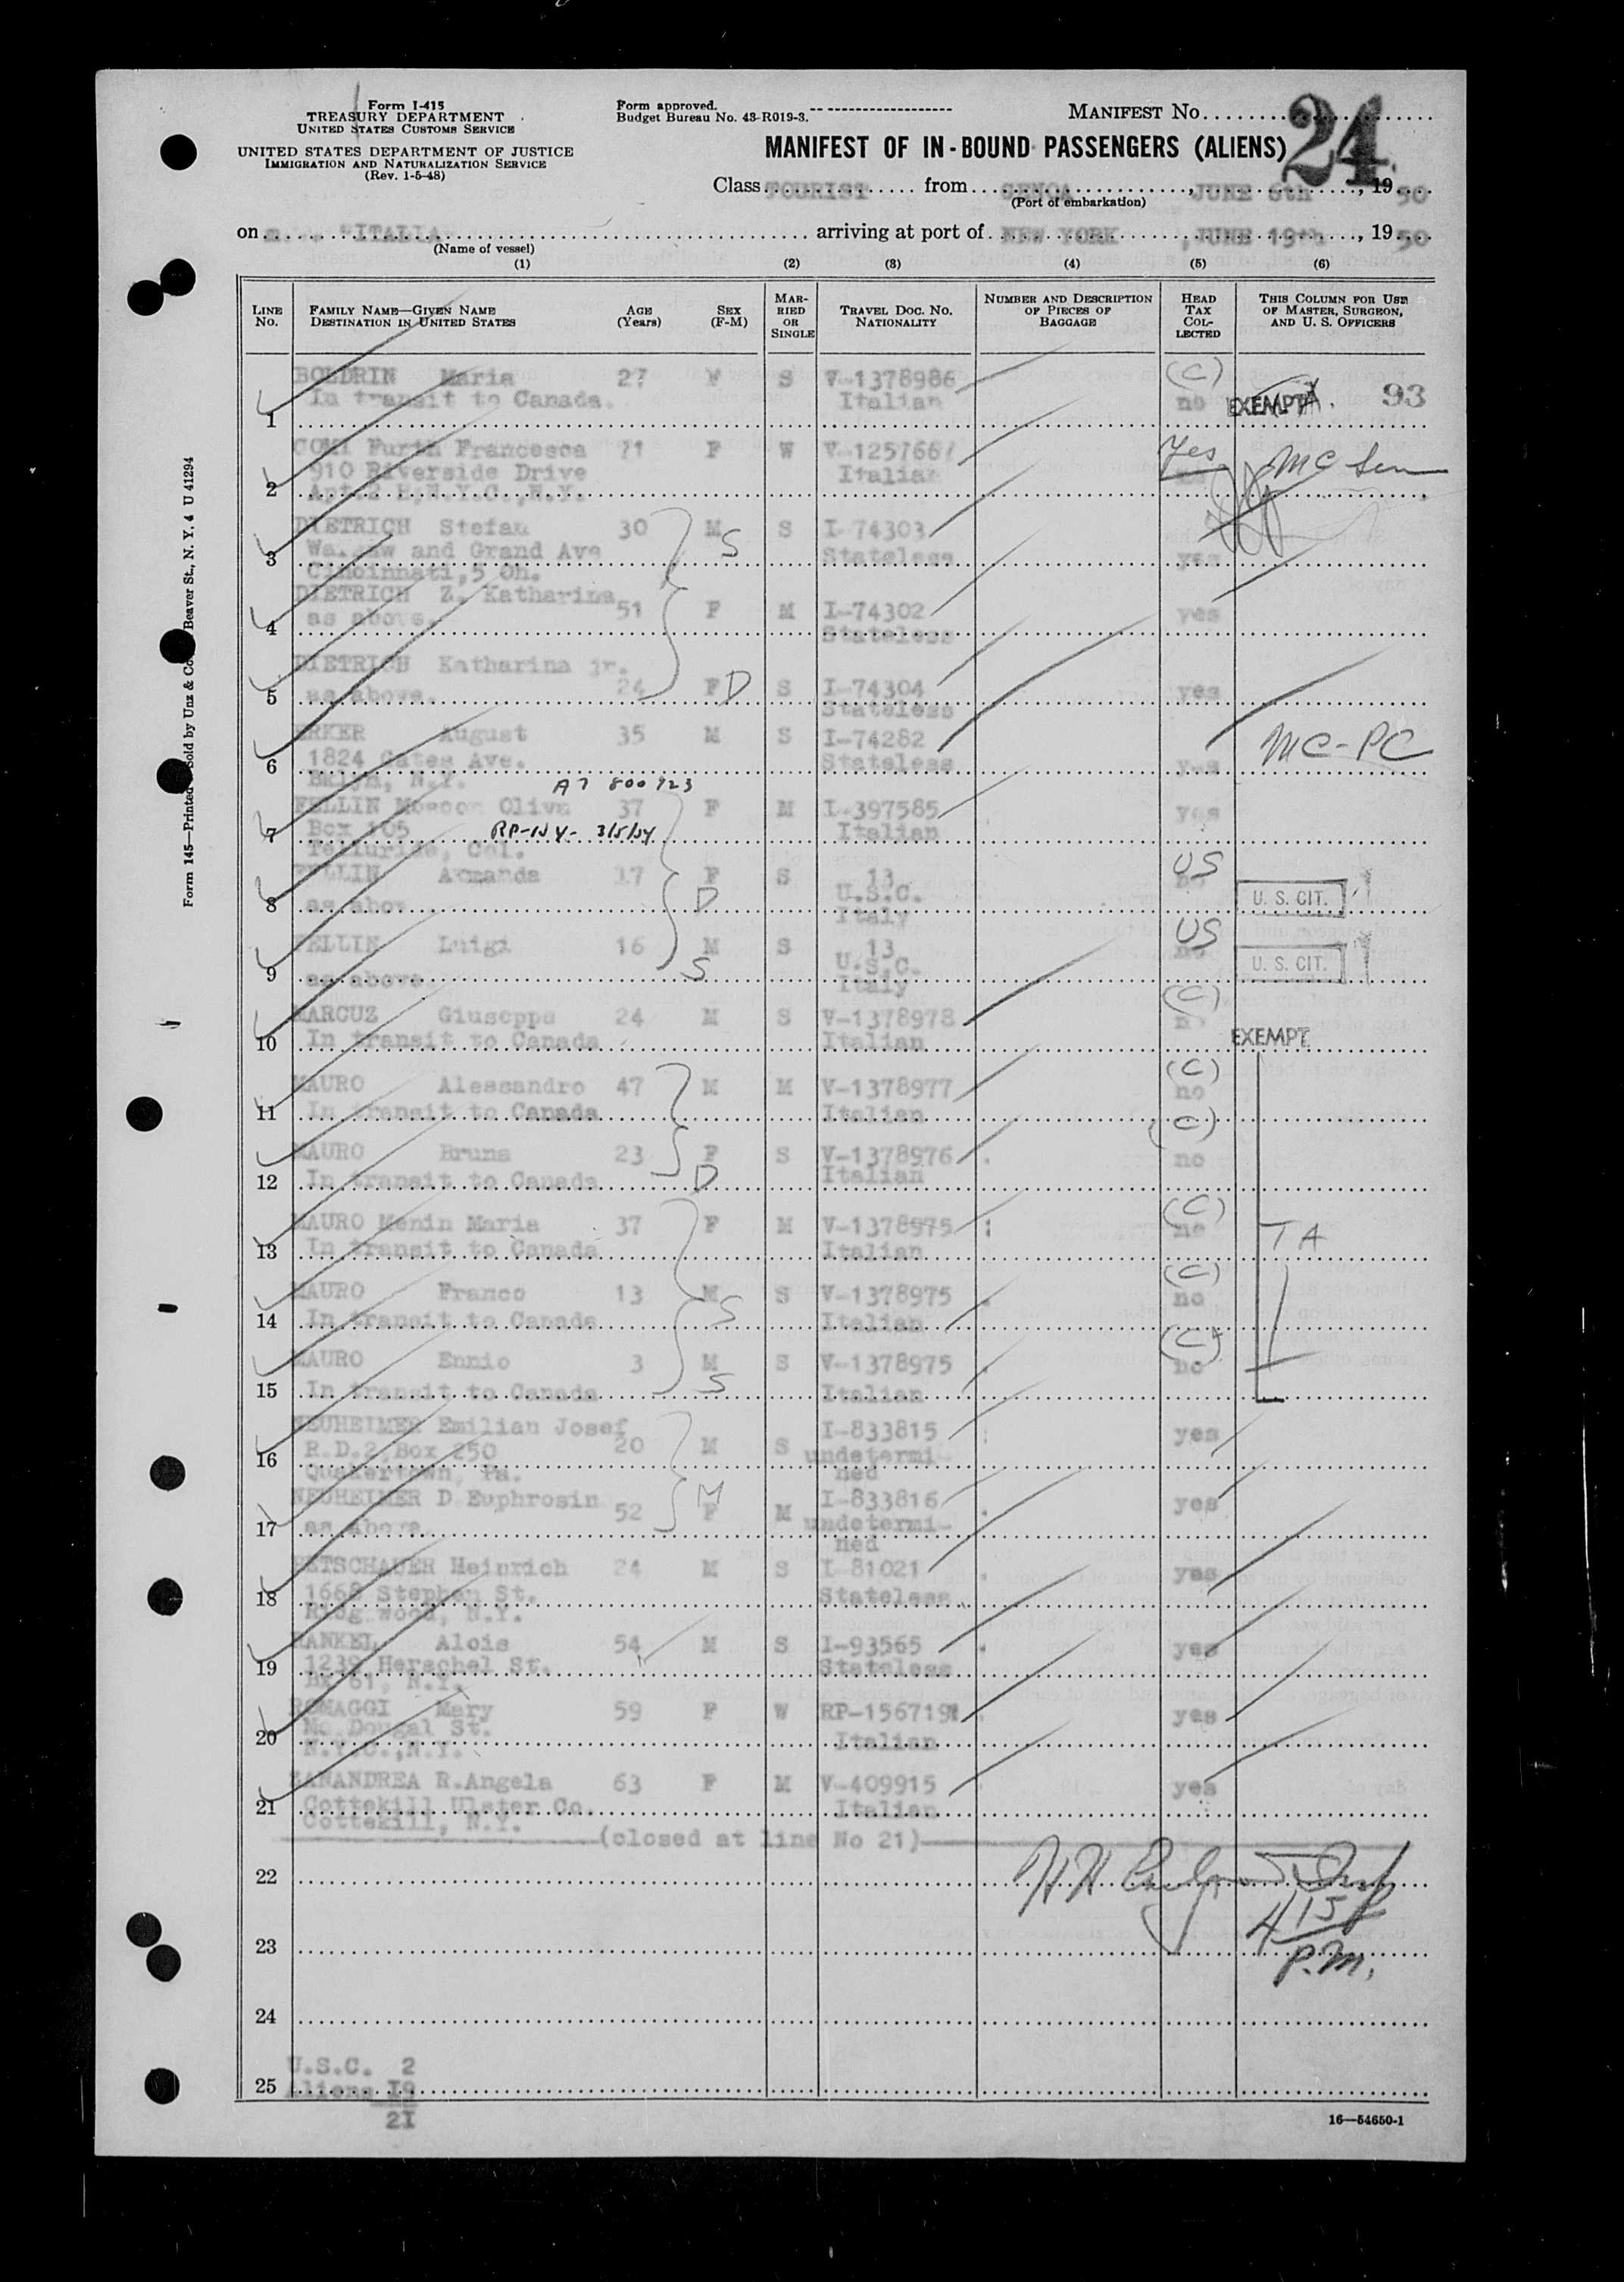 Form I-415
TREASURY DEPARTMENT
UNITED STATES CUSTOMS SERVICE
UNITED STATES DEPARTMENT OF JUSTICE
IMMIGRATION AND NATURALIZATION SERVICE
(Rev. 1-5-48)
Form approved.
Budget Bureau No. 43-R019-3.
MANIFEST No. 24
MANIFEST OF IN-BOUND PASSENGERS (ALIENS)
Class TOURIST from GENOA, JUNE 6th, 1950
(Port of embarkation)
on m. "ITALIA arriving at port of NEW YORK, JUNE 19th, 1950
(Name of vessel)
(1) (2) (3) (4) (5) (6)
LINE No. FAMILY NAME—GIVEN NAME DESTINATION IN UNITED STATES AGE (Years) SEX (F-M) MARRIED OR SINGLE TRAVEL DOC. NO. NATIONALITY NUMBER AND DESCRIPTION OF PIECES OF BAGGAGE HEAD TAX COLLECTED THIS COLUMN FOR USE OF MASTER, SURGEON, AND U. S. OFFICERS
BOLDRIN Maria 27 F S V-1378986 (C) 93
1 In transit to Canada. Italian no EXEMPT
COMI Furth Francesca 71 F W V-1257667 Yes MC Sen
910 Riverside Drive Italian
2 Apt.2 H,N.Y.C.,N.Y.
DIETRICH Stefan 30 M S S I-74303
3 Warsaw and Grand Ave Stateless yes
Cincinnati,5 Oh.
DIETRICH Z. Katharina 51 F M I-74302 yes
4 as above. Stateless
DIETRICH Katharina jr.
5 as above. 24 F D S I-74304 yes
Stateless
ERKER August 35 M S I-74282 MC-PC
6 1824 Gates Ave. Stateless yes
Bklyn, N.Y. A7 800723
FELLIN Moscon Oliva 37 F M I-397585 yes
7 Box 105 RP-NY- 3/5/54 Italian
Telluride, Col.
FELLIN Armanda 17 F S 13 US no
8 as abov D U.S.C. U. S. CIT.
Italy
FELLIN Luigi 16 M S 13 US no
9 as above S U.S.C. U. S. CIT.
Italy
MARCUZ Giuseppe 24 M S V-1378978 (C)
10 In transit to Canada Italian EXEMPT
MAURO Alessandro 47 M M V-1378977 (C) no
11 In transit to Canada Italian
MAURO Bruna 23 F S V-1378976 (C) no
12 In transit to Canada D Italian
MAURO Menin Maria 37 F M V-1378975 (C) no TA
13 In transit to Canada Italian
MAURO Franco 13 M S V-1378975 (C) no
14 In transit to Canada S Italian
MAURO Ennio 3 M S V-1378975 (C) no
15 In transit to Canada S Italian
NEUHEIMER Emilian Josef I-833815 yes
16 R.D.2,Box 250 20 M S undetermi-
Quakertown, Pa. ned
NEUHEIMER D Euphrosin 52 M F M I-833816 yes
17 as above undetermi-
ned
PETSCHAUER Heinrich 24 M S I-81021 yes
18 1668 Stephen St. Stateless
Ridg wood, N.Y.
RANKEL Alois 54 M S I-93565 yes
19 1239 Herschel St. Stateless
Bx 61, N.Y.
ROMAGGI Mary 59 F W RP-1567191 yes
20 Mc Dougal St. Italian
N.Y.C.,N.Y.
ZANANDREA R.Angela 63 F M V-409915 yes
21 Cottekill Ulster Co. Italian
Cottekill, N.Y.
(closed at line No 21)
22
23 4 15 P.M.
24
U.S.C. 2
25 Aliens 19
21
16—54650-1
Form 145—Printed Sold by Unz & Co. Beaver St., N. Y. 4 U 41294